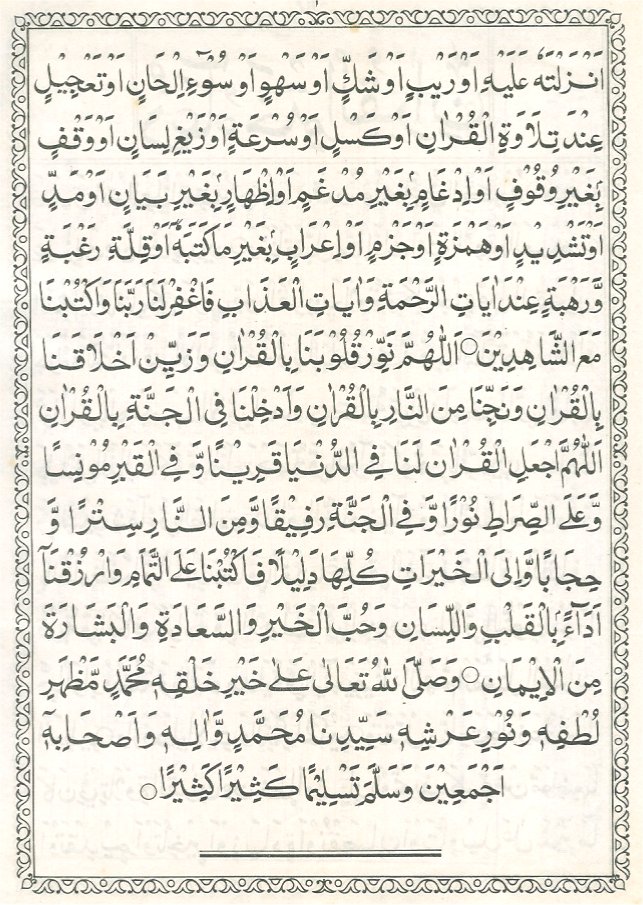 اَنْزَلْتَهٗ عَلَيْهِ اَوْ رَيْبٍ اَوْ شَكٍّ اَوْ سَهْوٍ اَوْ سُوْٓءِ اِلْحَانٍ اَوْ تَعْجِيْلٍ
عِنْدَ تِلَاوَةِ الْقُرْاٰنِ اَوْ كَسْلٍ اَوْ سُرْعَةٍ اَوْ زَيْغِ لِسَانٍ اَوْ وَقْفٍ
بِغَيْرِ وُقُوْفٍ اَوْ اِدْغَامٍ بِغَيْرِ مُدْغَمٍ اَوْ اِظْهَارٍ بِغَيْرِ بَيَانٍ اَوْ مَدٍّ
اَوْ تَشْدِيْدٍ اَوْ هَمْزَةٍ اَوْ جَزْمٍ اَوْ اِعْرَابٍ بِغَيْرِ مَا كَتَبَهٗ اَوْ قِلَّةِ رَغْبَةٍ
وَّرَهْبَةٍ عِنْدَ اٰيَاتِ الرَّحْمَةِ وَاٰيَاتِ الْعَذَابِ فَاغْفِرْلَنَا رَبَّنَا وَاكْتُبْنَا
مَعَ الشَّاهِدِيْنَ○ اَللّٰهُمَّ نَوِّرْ قُلُوْبَنَا بِالْقُرْاٰنِ وَزَيِّنْ اَخْلَاقَنَا
بِالْقُرْاٰنِ وَنَجِّنَا مِنَ النَّارِ بِالْقُرْاٰنِ وَاَدْخِلْنَا فِى الْجَنَّةِ بِالْقُرْاٰنِ
اَللّٰهُمَّ اجْعَلِ الْقُرْاٰنَ لَنَا فِى الدُّنْيَا قَرِيْنًا وَّ فِى الْقَبْرِ مُوْنِسًا
وَّ عَلَى الصِّرَاطِ نُوْرًا وَّ فِى الْجَنَّةِ رَفِيْقًا وَّ مِنَ النَّارِ سِتْرًا وَّ
حِجَابًا وَّ اِلَى الْخَيْرَاتِ كُلِّهَا دَلِيْلًا فَاكْتُبْنَا عَلَى التَّمَامِ وَارْزُقْنَآ
اَدَآءً بِالْقَلْبِ وَاللِّسَانِ وَحُبَّ الْخَيْرِ وَالسَّعَادَةِ وَالْبَشَارَةَ
مِنَ الْاِيْمَانِ○ وَصَلَّى اللّٰهُ تَعَالٰى عَلٰى خَيْرِ خَلْقِهٖ مُحَمَّدٍ مَّظْهَرِ
لُطْفِهٖ وَنُوْرِ عَرْشِهٖ سَيِّدِنَا مُحَمَّدٍ وَّاٰلِهٖ وَاَصْحَابِهٖ
اَجْمَعِيْنَ وَسَلَّمَ تَسْلِيْمًا كَثِيْرًا كَثِيْرًا○